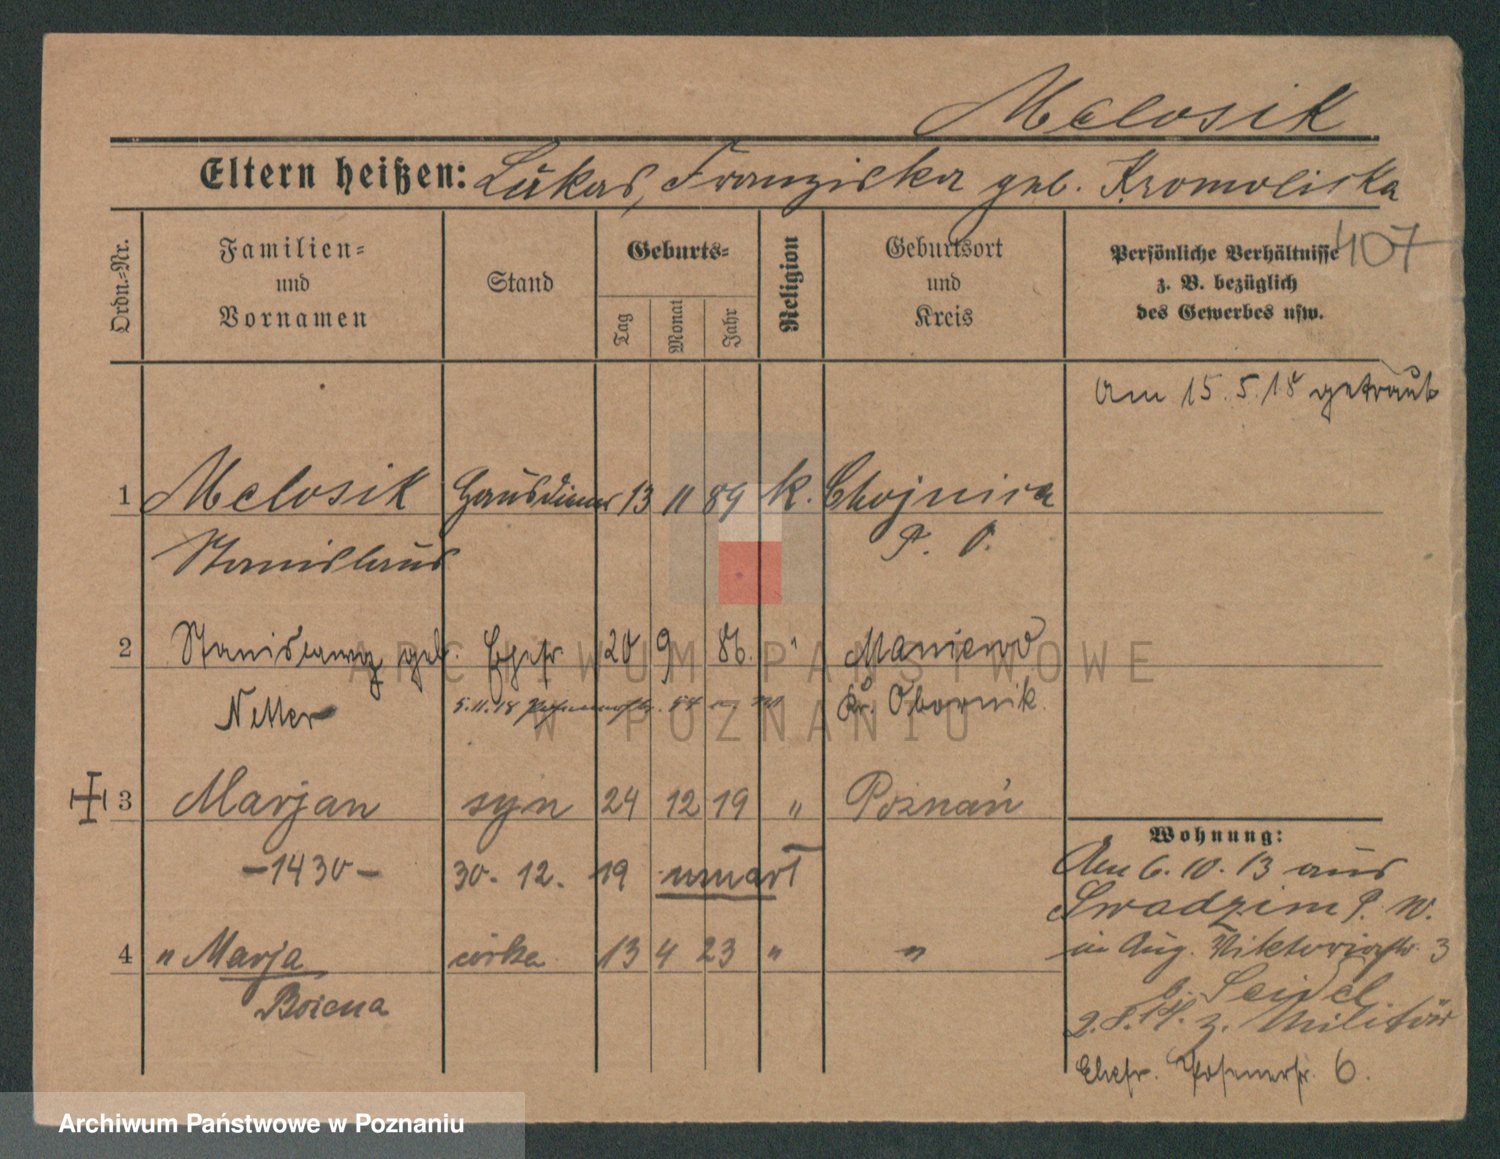 Melosik
Eltern heißen: Lukas, Franziska geb. Kromoliska
Ordn.=Nr.
Familien=
und
Vornamen
Stand
Geburts=
Tag
Monat
Jahr
Religion
Geburtsort
und
Kreis
Persönliche Verhältnisse
z. B. bezüglich
des Gewerbes usw.
407
Am 15.5.18 getraut
1 Melosik Hausdiener 13 11 89 k. Chojnica
Stanislaus P. O.
2 Stanislawa geb. Ehefr 20 9 86. " Maniewo
Netter 5.11.18 Kr. Obornik
3 Marjan syn 24 12 19 " Poznań
-1430- 30. 12. 19 umarł
4 " Marja córka 13 4 23 " "
Bożena
Wohnung:
Am 6.10.13 aus
Swadzim P. W.
in Aug. Viktoriastr. 3
b. Seidel
2.8.14. z. Militär
Ehefr. Posenerstr. 6.
ARCHIWUM PAŃSTWOWE
W POZNANIU
Archiwum Państwowe w Poznaniu